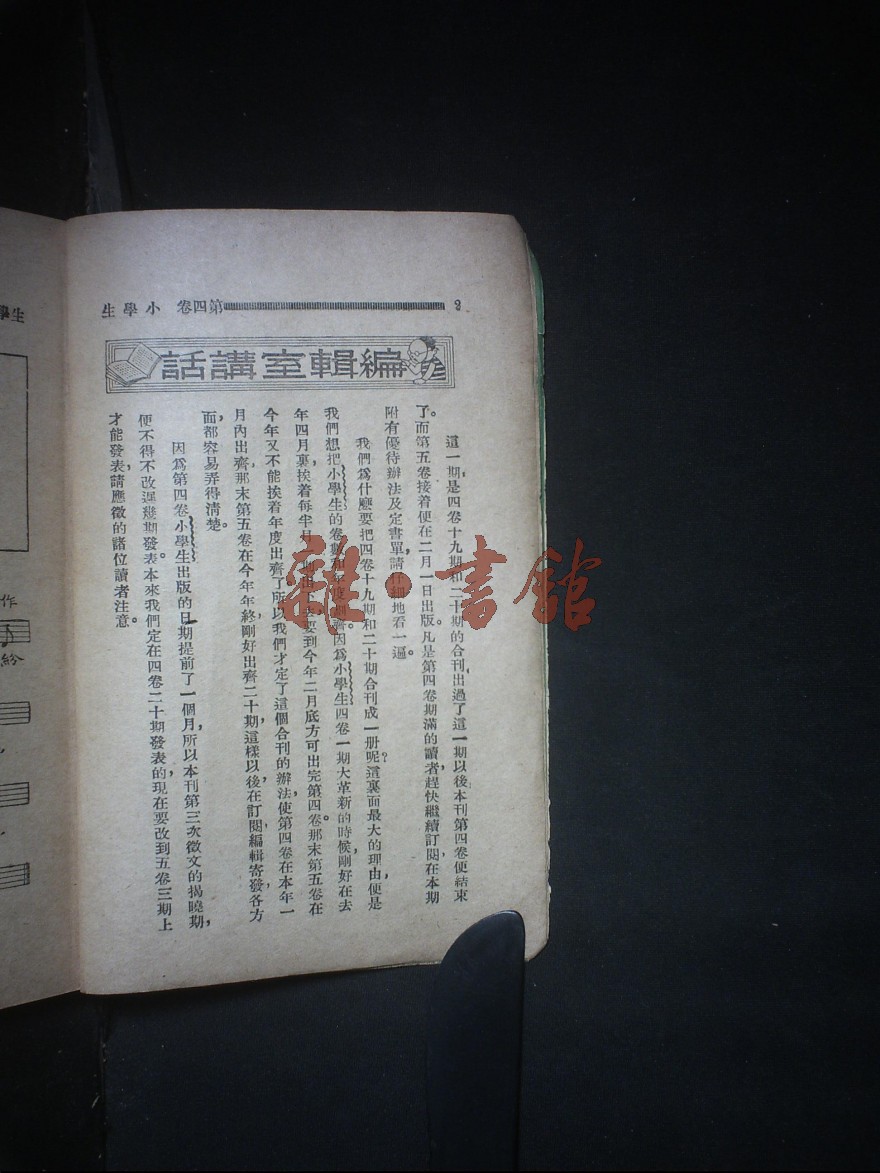 生學小 卷四第 2
話講室輯編
這一期,是四卷十九期和二十期的合刊,出過了這一期以後,本刊第四卷便結束
了。而第五卷接着便在二月一日出版。凡是第四卷期滿的讀者,趕快繼續訂閱,在本期
附有優待辦法及定書單,請仔細地看一遍。
我們爲什麽要把四卷十九期和二十期合刊成一册呢?這裏面最大的理由,便是
我們想把小學生的卷數和年度 齊。因爲小學生四卷一期大革新的時候,剛好在去
年四月裏,挨着每半月 期出下去,要到今年二月底方可出完第四卷。那末第五卷在
今年又不能挨着年度出齊了。所以我們才定了這個合刊的辦法,使第四卷在本年一
月內出齊,那末第五卷在今年年終,剛好出齊二十期,這樣以後在訂閱,編輯,寄發各方
面,都容易弄得清楚。
因爲第四卷小學生出版的日期提前了一個月,所以本刊第三次徵文的揭曉期,
便不得不改遲幾期發表。本來我們定在四卷二十期發表的,現在要改到五卷三期上
才能發表,請應徵的諸位讀者注意。
學生
作
紛
雜·書館